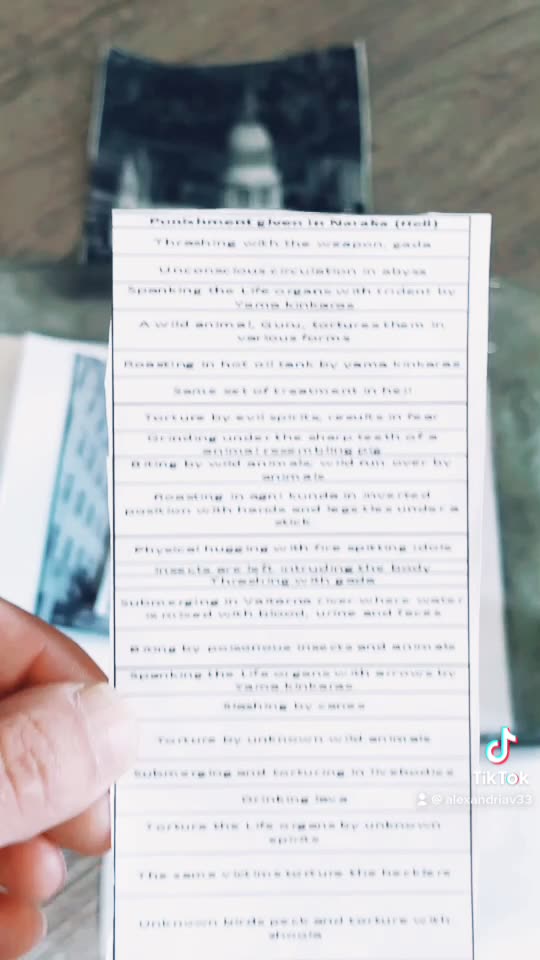 Punishment given in Naraka (Hell)
Thrashing with the weapon, gada
Unconscious circulation in abyss
Spanking the Life organs with trident by
Yama kinkaras
A wild animal, Guru, tortures them in
various forms
Roasting in hot oil tank by yama kinkaras
Same set of treatment in hell
Torture by evil spirits, results in fear
Grinding under the sharp teeth of a
animal resembling pig
Biting by wild animals, wild run over by
animals
Roasting in agni kunda in inverted
position with hands and legs ties under a
stick
Physical hugging with fire spitting idols
Insects are left intruding the body
Thrashing with gada
Submerging in Vaitarna river where water
is mixed with blood, urine and feces
Biting by poisonous insects and animals
Spanking the Life organs with arrows by
Yama kinkaras
Slashing by canes
Torture by unknown wild animals
Submerging and torturing in
Drinking lava
Torture the Life organs by unknown
spirits
The same victims torture the
Unknown birds peck and torture with
TikTok
@ alexandriav33